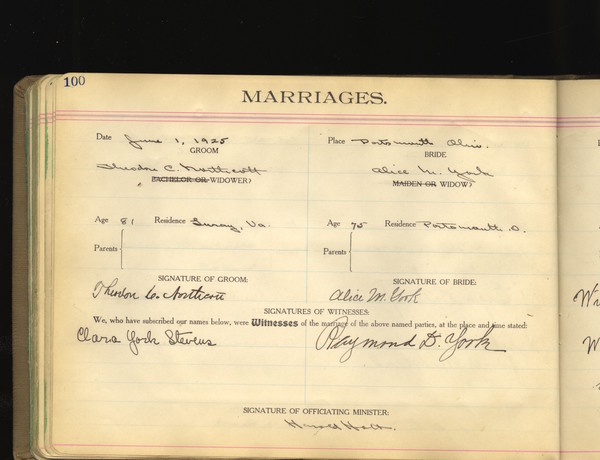 100
MARRIAGES.
Date June 1, 1925 Place Portsmouth Ohio.
GROOM BRIDE
Theodore C. Northcott Alice M. York
BACHELOR OR WIDOWER? MAIDEN OR WIDOW?
Age 81 Residence Luray, Va. Age 75 Residence Portsmouth O.
Parents Parents
SIGNATURE OF GROOM: SIGNATURE OF BRIDE:
Theodore C. Northcott Alice M. York
SIGNATURES OF WITNESSES:
We, who have subscribed our names below, were Witnesses of the marriage of the above named parties, at the place and time stated:
Clara York Stevens Raymond D. York
SIGNATURE OF OFFICIATING MINISTER:
Harold Holt.